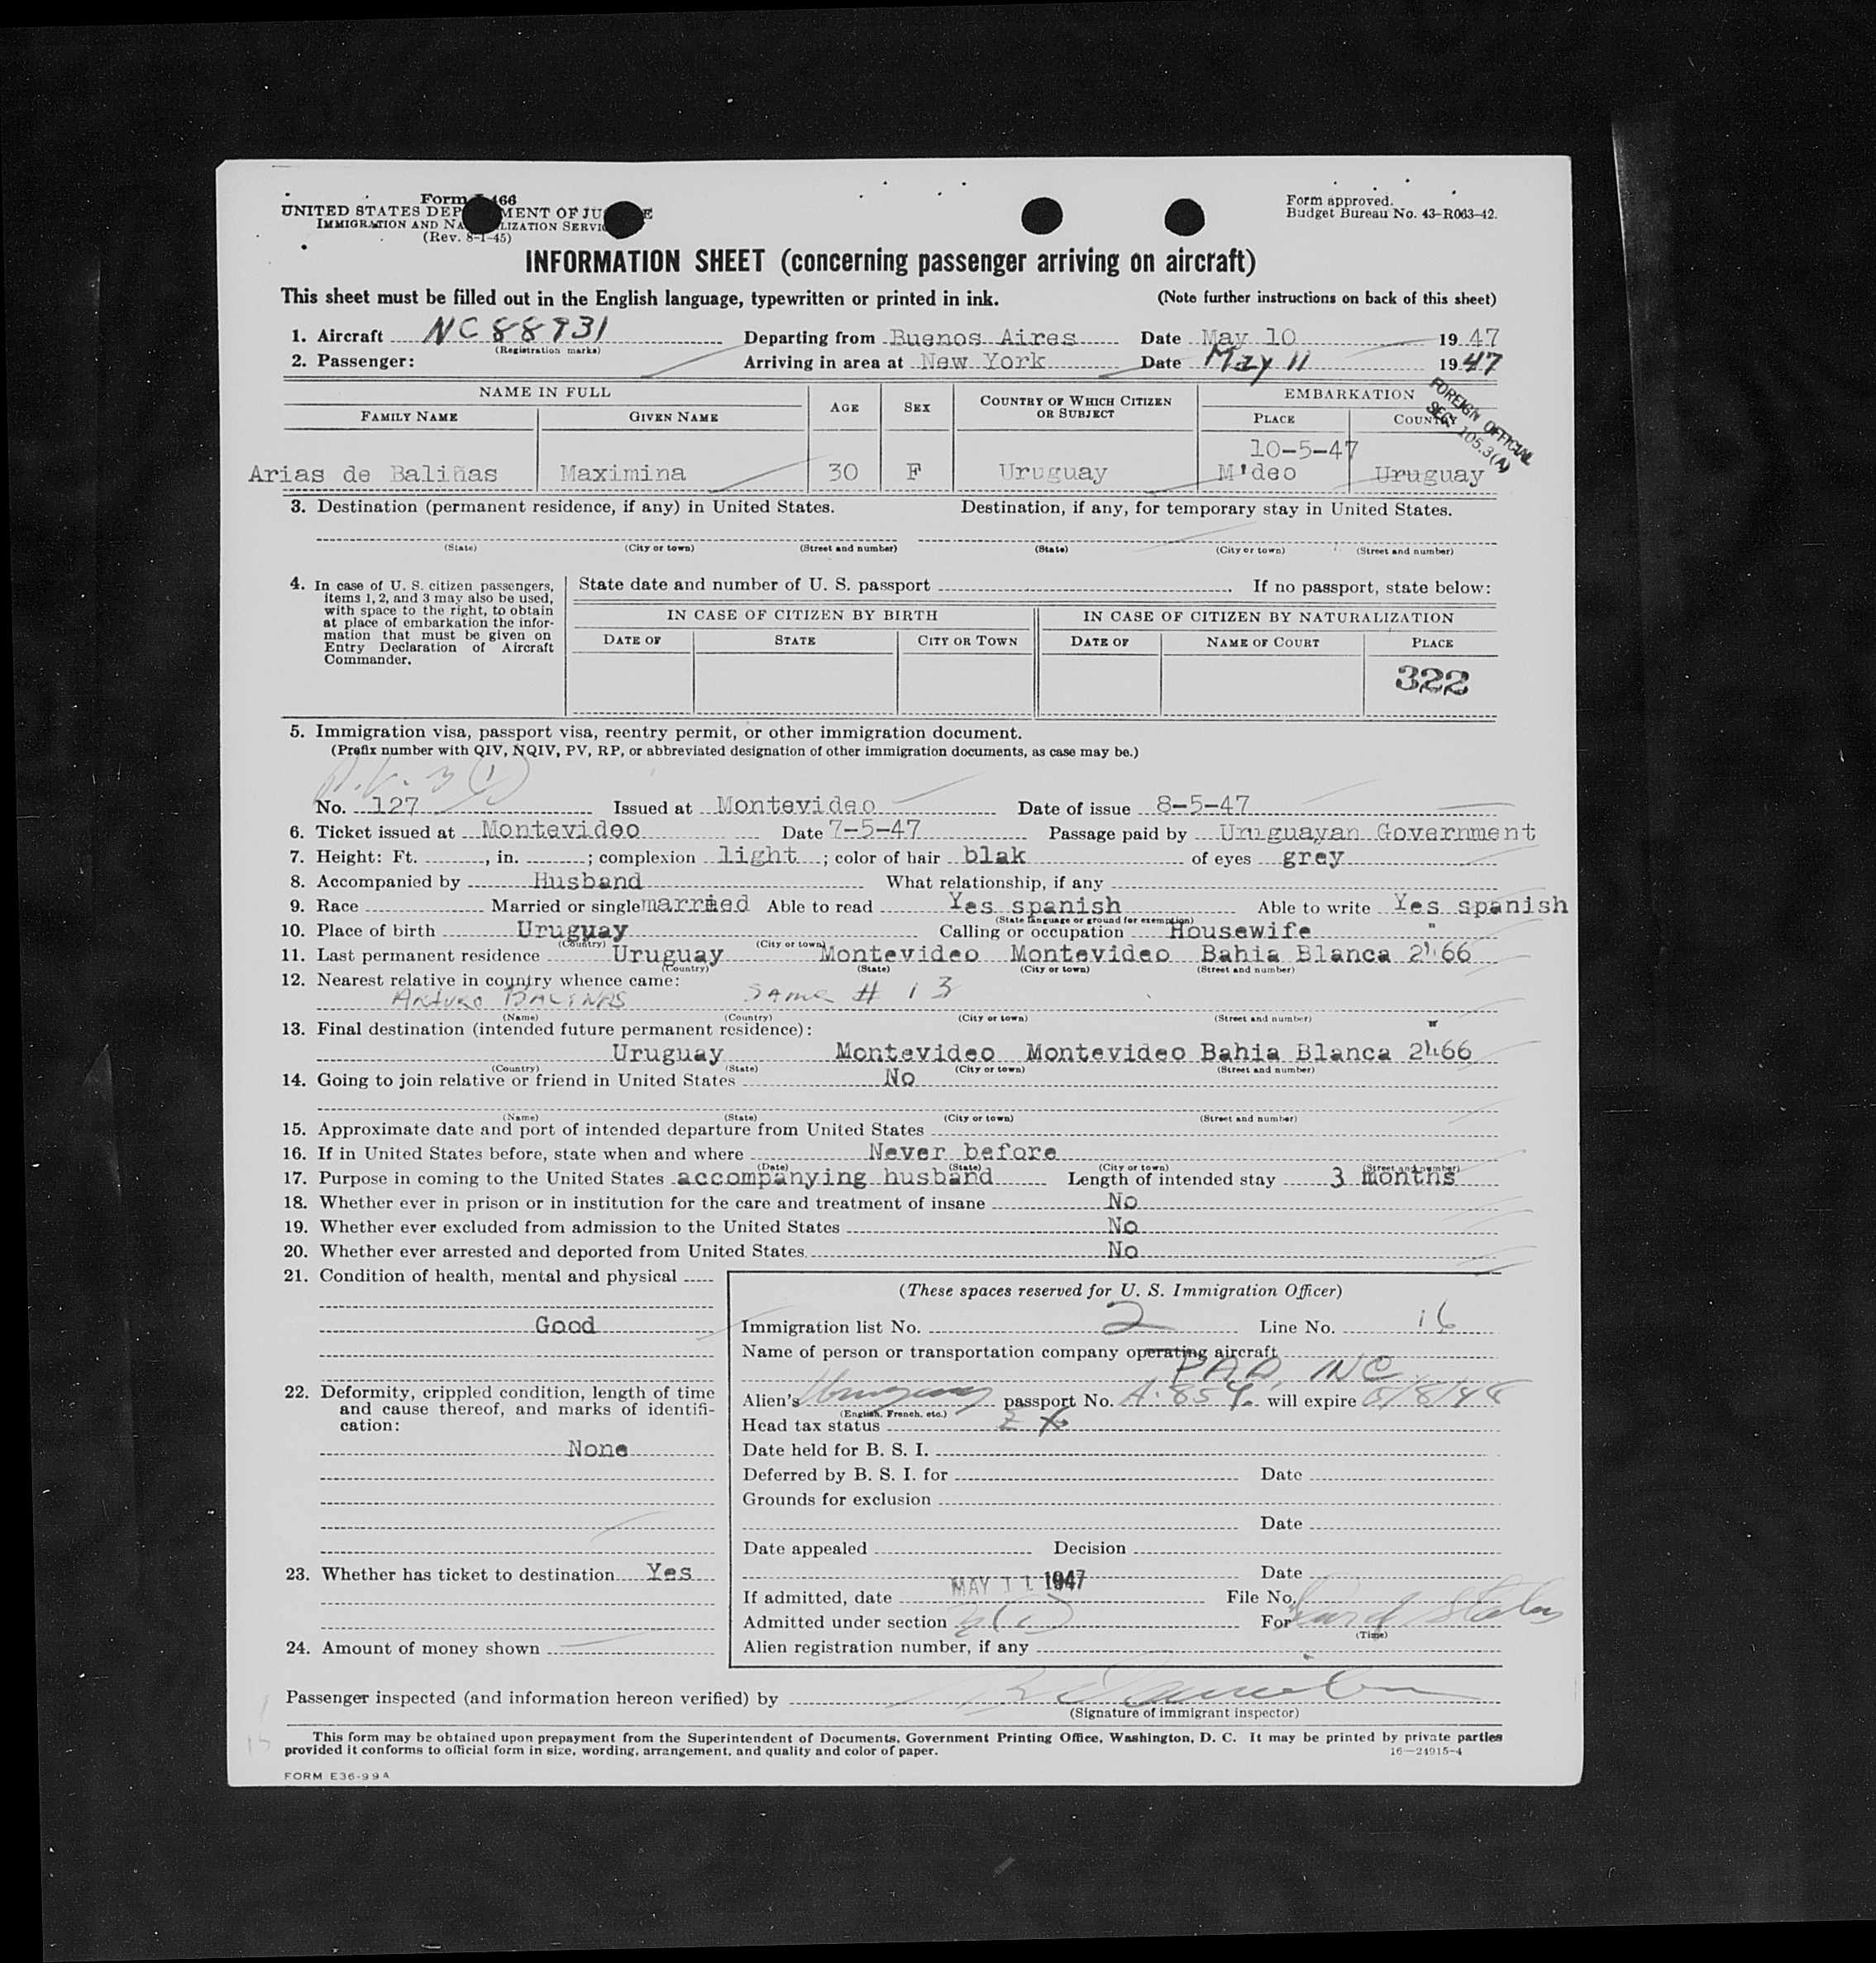 Form 466
UNITED STATES DEP MENT OF JU E
IMMIGRATION AND NA LIZATION SERVIC
(Rev. 8-1-45)
Form approved.
Budget Bureau No. 43-R063-42.
INFORMATION SHEET (concerning passenger arriving on aircraft)
This sheet must be filled out in the English language, typewritten or printed in ink. (Note further instructions on back of this sheet)
1. Aircraft NC 88931 Departing from Buenos Aires Date May 10 19 47
(Registration marks)
2. Passenger: Arriving in area at New York Date May 11 19 47
FOREIGN OFFICIAL
SEC. 105.3(A)
NAME IN FULL AGE SEX COUNTRY OF WHICH CITIZEN OR SUBJECT EMBARKATION
FAMILY NAME GIVEN NAME PLACE COUNTRY
10-5-47
Arias de Baliñas Maximina 30 F Uruguay M'deo Uruguay
3. Destination (permanent residence, if any) in United States. Destination, if any, for temporary stay in United States.
(State) (City or town) (Street and number) (State) (City or town) (Street and number)
4. In case of U. S. citizen passengers, items 1, 2, and 3 may also be used, with space to the right, to obtain at place of embarkation the information that must be given on Entry Declaration of Aircraft Commander.
State date and number of U. S. passport . If no passport, state below:
IN CASE OF CITIZEN BY BIRTH IN CASE OF CITIZEN BY NATURALIZATION
DATE OF STATE CITY OR TOWN DATE OF NAME OF COURT PLACE
322
5. Immigration visa, passport visa, reentry permit, or other immigration document.
(Prefix number with QIV, NQIV, PV, RP, or abbreviated designation of other immigration documents, as case may be.)
P.V. 3 (1)
No. 127 Issued at Montevideo Date of issue 8-5-47
6. Ticket issued at Montevideo Date 7-5-47 Passage paid by Uruguayan Government
7. Height: Ft. , in. ; complexion light ; color of hair blak of eyes grey
8. Accompanied by Husband What relationship, if any
9. Race Married or single married Able to read Yes spanish Able to write Yes spanish
(State language or ground for exemption)
10. Place of birth Uruguay Calling or occupation Housewife "
(Country) (City or town)
11. Last permanent residence Uruguay Montevideo Montevideo Bahia Blanca 2466
(Country) (State) (City or town) (Street and number)
12. Nearest relative in country whence came:
Arturo BALINAS same # 13
(Name) (Country) (City or town) (Street and number)
13. Final destination (intended future permanent residence): "
Uruguay Montevideo Montevideo Bahia Blanca 2466
(Country) (State) (City or town) (Street and number)
14. Going to join relative or friend in United States No
(Name) (State) (City or town) (Street and number)
15. Approximate date and port of intended departure from United States
16. If in United States before, state when and where Never before
(Date) (State) (City or town) (Street and number)
17. Purpose in coming to the United States accompanying husband Length of intended stay 3 months
18. Whether ever in prison or in institution for the care and treatment of insane No
19. Whether ever excluded from admission to the United States No
20. Whether ever arrested and deported from United States No
21. Condition of health, mental and physical
Good
22. Deformity, crippled condition, length of time and cause thereof, and marks of identification:
None
23. Whether has ticket to destination Yes
24. Amount of money shown
(These spaces reserved for U. S. Immigration Officer)
Immigration list No. 2 Line No. 16
Name of person or transportation company operating aircraft
PAA, INC
Alien's Uruguay passport No. A. 854 will expire 5/8/48
(English, French, etc.)
Head tax status Ex
Date held for B. S. I.
Deferred by B. S. I. for Date
Grounds for exclusion
Date
Date appealed Decision
Date
If admitted, date MAY 11 1947 File No.
Admitted under section 3(1) For
(Time)
Alien registration number, if any
Passenger inspected (and information hereon verified) by
(Signature of immigrant inspector)
This form may be obtained upon prepayment from the Superintendent of Documents, Government Printing Office, Washington, D. C. It may be printed by private parties
provided it conforms to official form in size, wording, arrangement, and quality and color of paper. 16—24915-4
FORM E36-99A